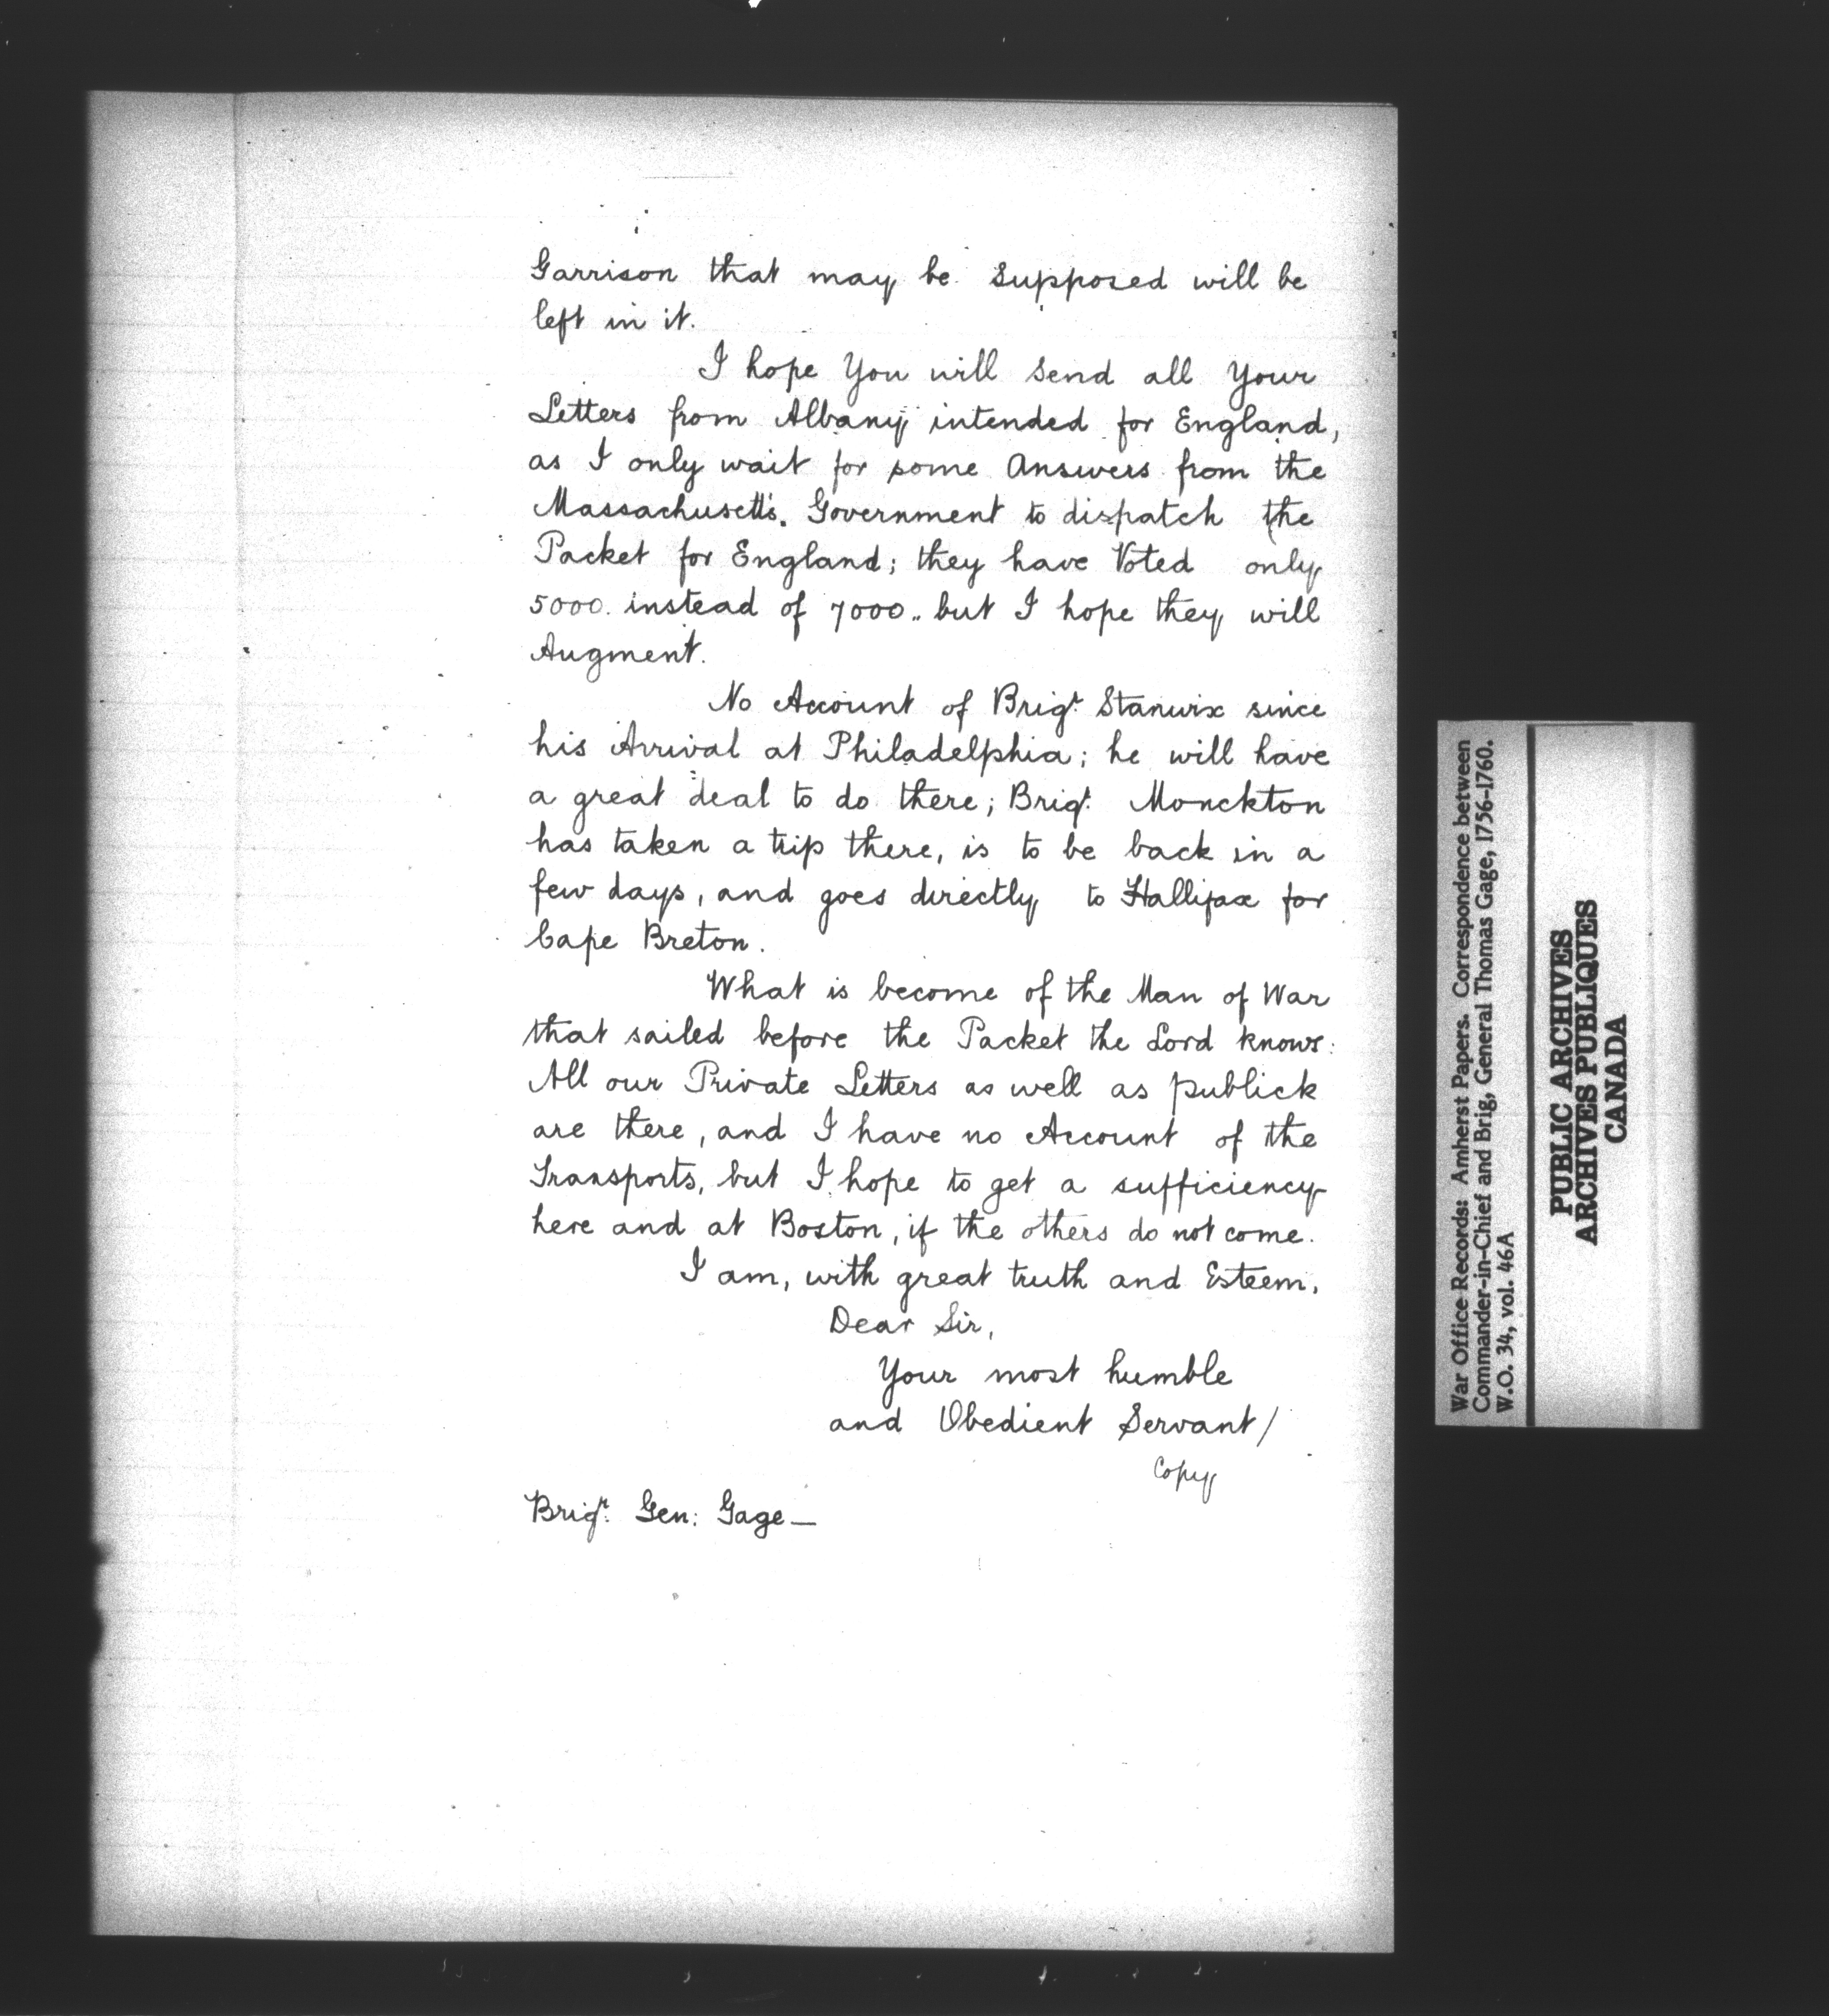 Garrison that may be supposed will be
left in it.
I hope You will send all Your
Letters from Albany intended for England,
as I only wait for some Answers from the
Massachusetts. Government to dispatch the
Packet for England; they have Voted only
5000. instead of 7000.. but I hope they will
Augment.
No Account of Brigr. Stanwix since
his Arrival at Philadelphia; he will have
a great deal to do there; Brigr. Monckton
has taken a trip there, is to be back in a
few days, and goes directly to Hallifax for
Cape Breton.
What is become of the Man of War
that sailed before the Packet the Lord knows:
All our Private Letters as well as publick
are there, and I have no Account of the
Transports, but I hope to get a sufficiency
here and at Boston, if the others do not come.
I am, with great truth and Esteem,
Dear Sir,
Your most humble
and Obedient Servant/
Copy
Brigr. Gen: Gage—
War Office Records: Amherst Papers. Correspondence between
Commander-in-Chief and Brig, General Thomas Gage, 1756-1760.
W.O. 34, vol. 46A
PUBLIC ARCHIVES
ARCHIVES PUBLIQUES
CANADA